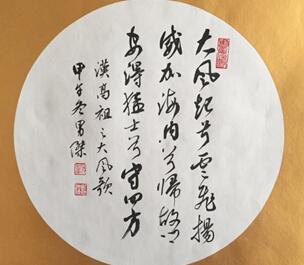 大风起兮云飛揚
威加海内兮歸故鄉
安得猛士兮守四方
漢高祖之大風歌
甲午冬男傑